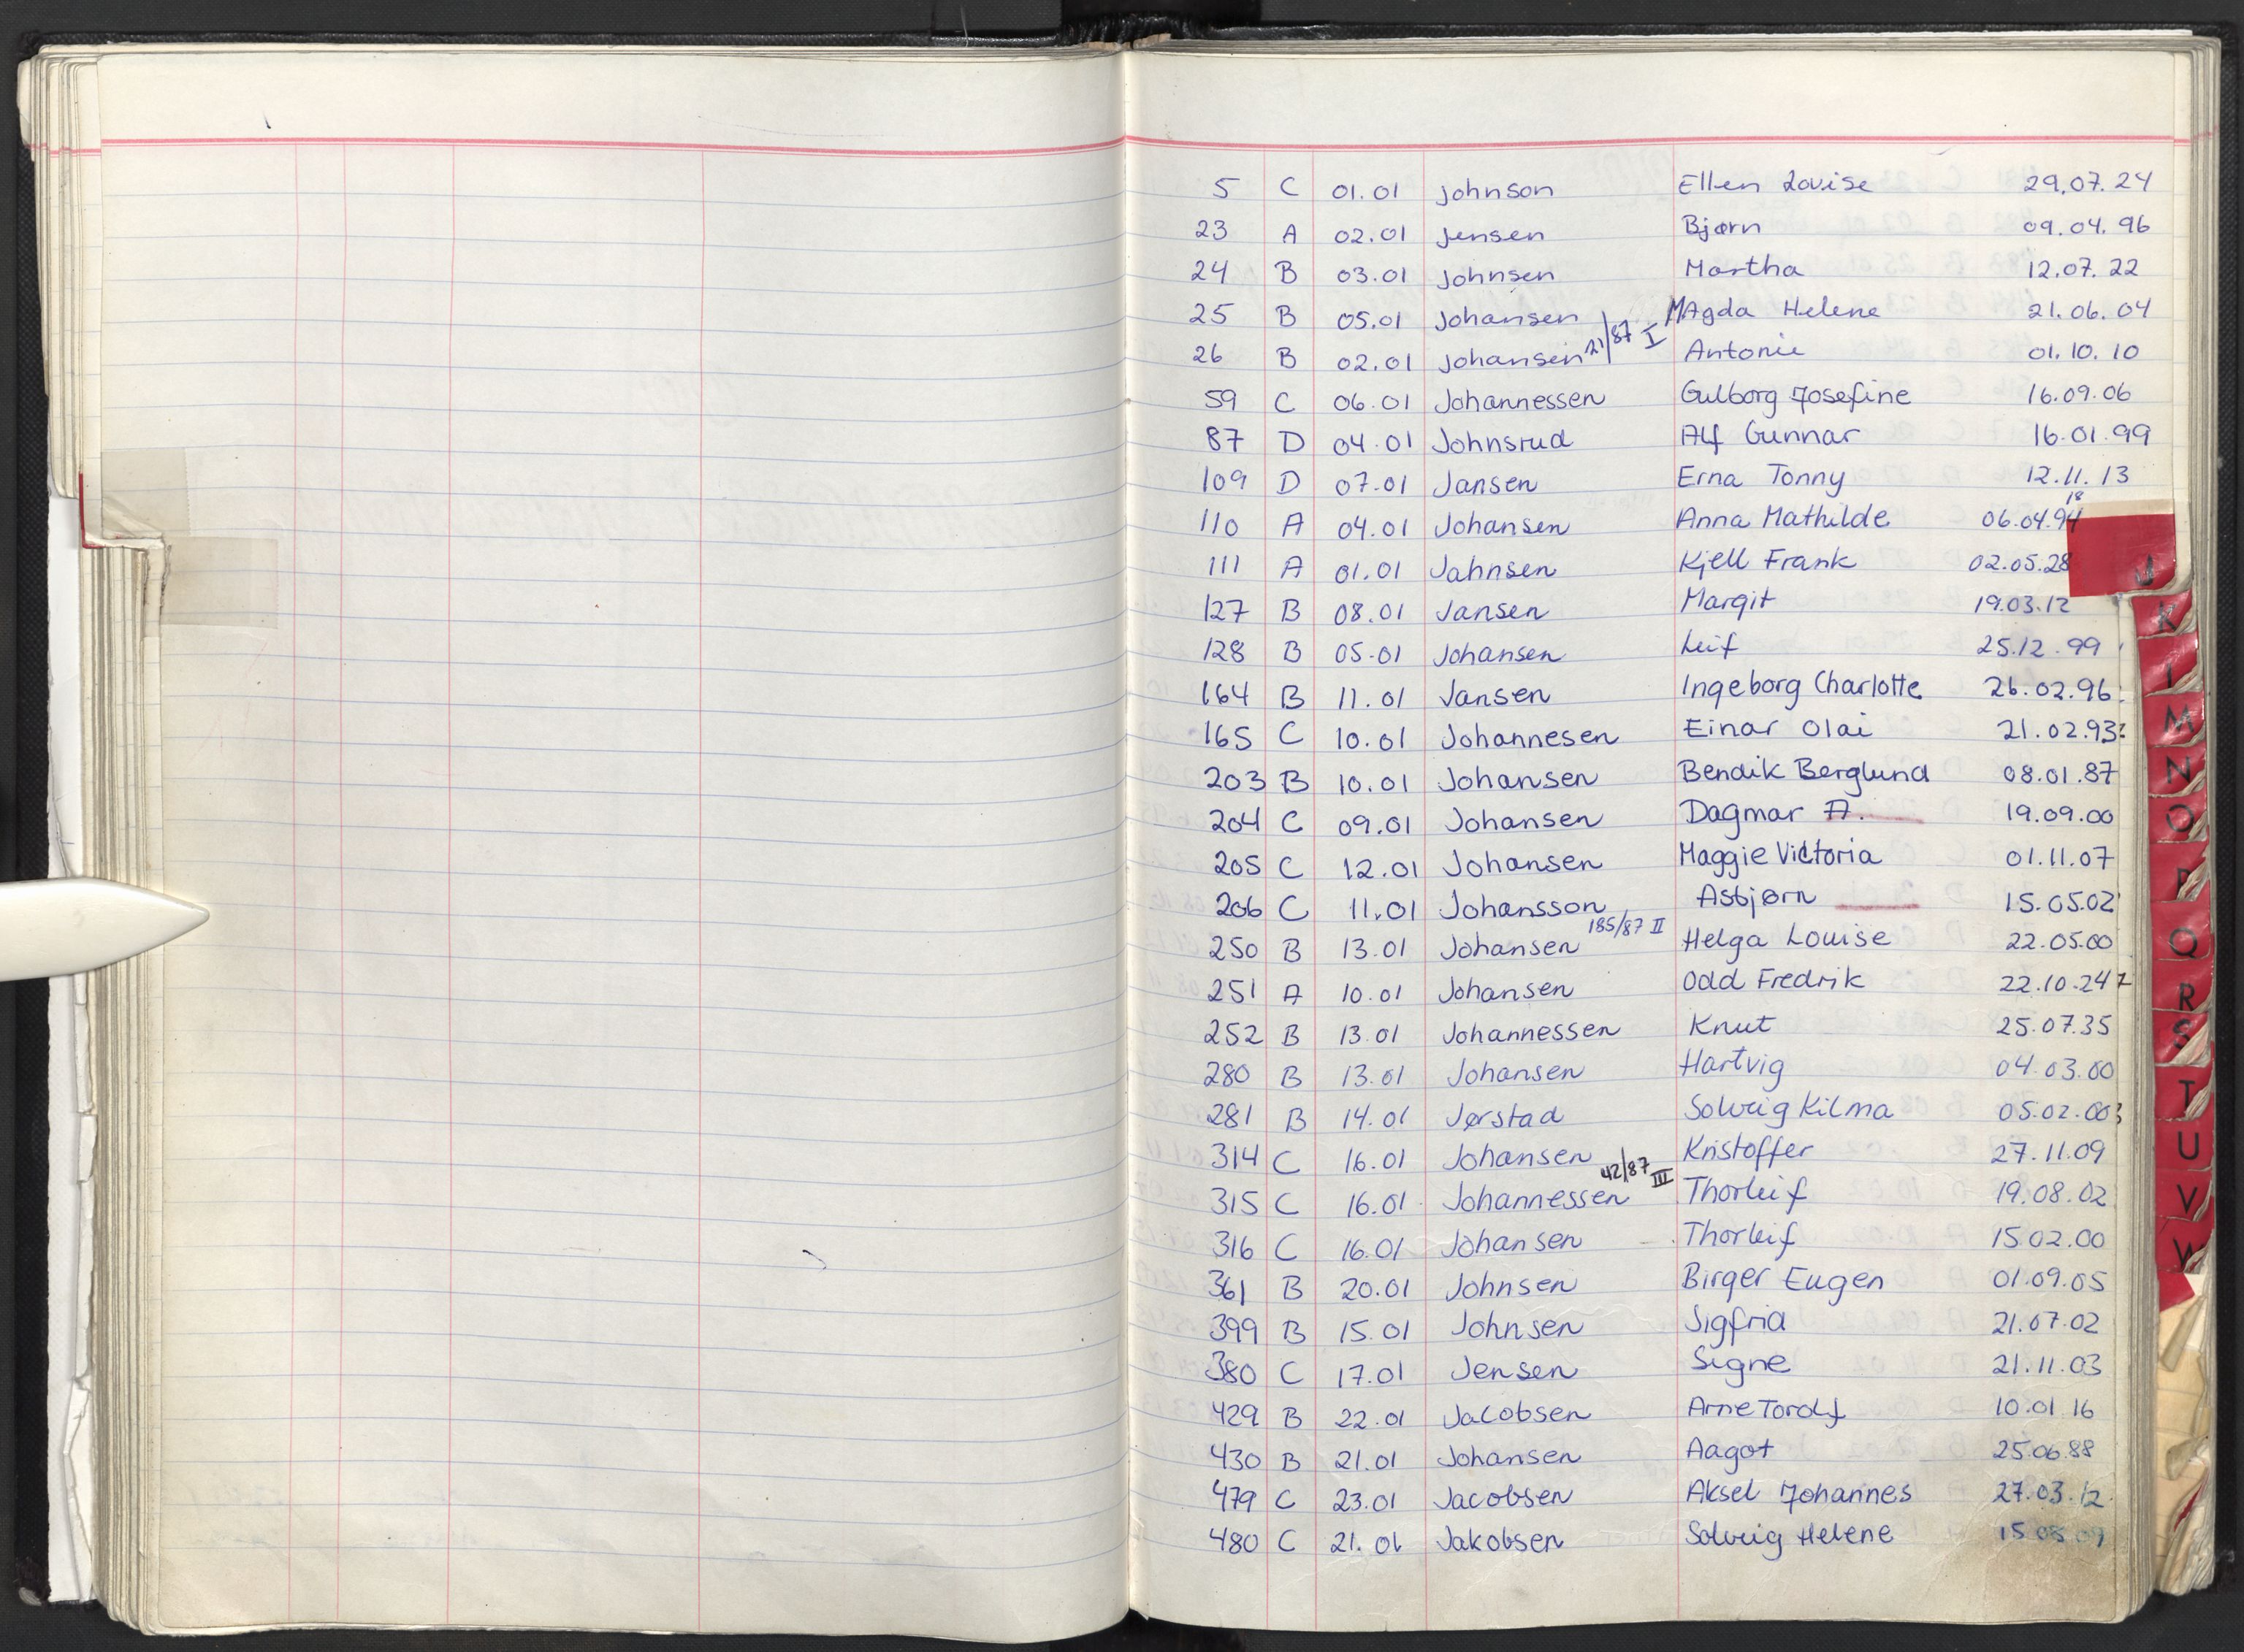 5 C 01.01 Johnson Ellen Lovise 29.07.24
23 A 02.01 Jensen Bjørn 09.04.96
24 B 03.01 Johnsen Martha 12.07.22
25 B 05.01 Johansen MAgda Helene 21.06.04
21/87 I
26 B 02.01 Johansen Antonie 01.10.10
59 C 06.01 Johannessen Gulborg Josefine 16.09.06
87 D 04.01 Johnsrud Alf Gunnar 16.01.99
109 D 07.01 Jansen Erna Tonny 12.11.13
18
110 A 04.01 Johansen Anna Mathilde 06.04.94
111 A 01.01 Jahnsen Kjell Frank 02.05.28
J
127 B 08.01 Jansen Margit 19.03.12
K
128 B 05.01 Johansen Leif 25.12.99
164 B 11.01 Jansen Ingeborg Charlotte 26.02.96
M
165 C 10.01 Johannesen Einar Olai 21.02.93
203 B 10.01 Johansen Bendik Berglund 08.01.87
N
204 C 09.01 Johansen Dagmar A. 19.09.00
O
205 C 12.01 Johansen Maggie Victoria 01.11.07
P
206 C 11.01 Johansson Asbjørn 15.05.02
185/87 II
250 B 13.01 Johansen Helga Louise 22.05.00
Q
251 A 10.01 Johansen Odd Fredrik 22.10.24
R
252 B 13.01 Johannessen Knut 25.07.35
S
280 B 13.01 Johansen Hartvig 04.03.00
T
281 B 14.01 Jørstad Solveig Kilma 05.02.00
314 C 16.01 Johansen Kristoffer 27.11.09
U
42/87 III
315 C 16.01 Johannessen Thorleif 19.08.02
V
316 C 16.01 Johansen Thorleif 15.02.00
W
361 B 20.01 Johnsen Birger Eugen 01.09.05
399 B 15.01 Johnsen Sigfrid 21.07.02
380 C 17.01 Jensen Signe 21.11.03
429 B 22.01 Jacobsen Arne Torolf 10.01.16
430 B 21.01 Johansen Aagot 25.06.88
479 C 23.01 Jacobsen Aksel Johannes 27.03.12
480 C 21.01 Jakobsen Solveig Helene